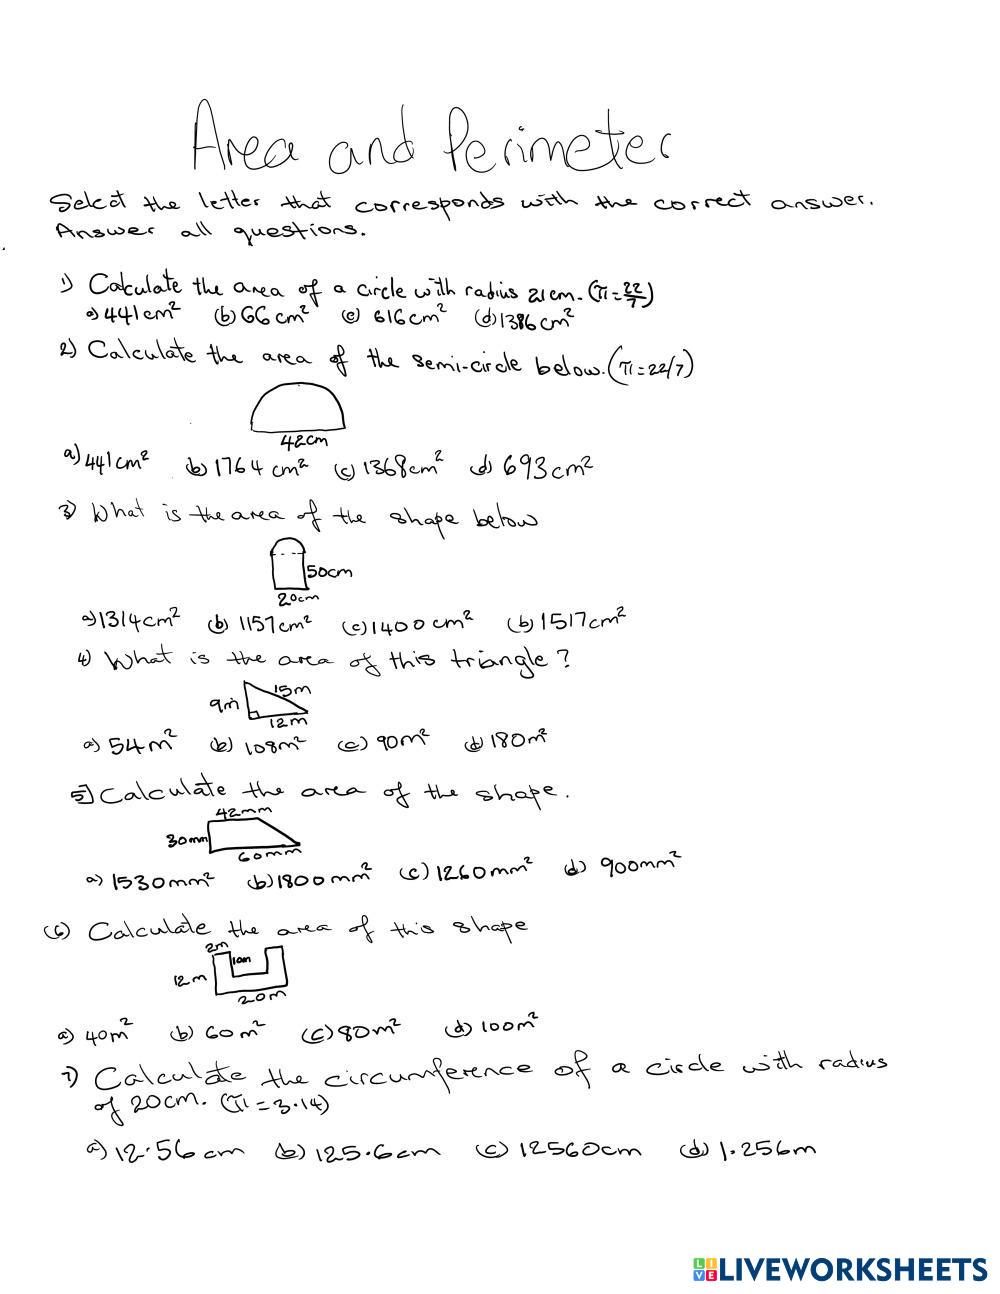 Area and Perimeter
Select the letter that corresponds with the correct answer.
Answer all questions.
1) Calculate the area of a circle with radius 21cm. (π=22/7)
a) 441cm² (b) 66cm² (c) 616cm² (d) 1386cm²
2) Calculate the area of the semi-circle below. (π=22/7)
42cm
a) 441cm² (b) 1764cm² (c) 1368cm² (d) 693cm²
3) What is the area of the shape below
50cm
20cm
a) 1314cm² (b) 1157cm² (c) 1400cm² (b) 1517cm²
4) What is the area of this triangle?
15m
9m
12m
a) 54m² (b) 108m² (c) 90m² (d) 180m²
5) Calculate the area of the shape.
42mm
30mm
60mm
a) 1530mm² (b) 1800mm² (c) 1260mm² (d) 900mm²
(6) Calculate the area of this shape
2m
10m
12m
20m
a) 40m² (b) 60m² (c) 80m² (d) 100m²
7) Calculate the circumference of a circle with radius
of 20cm. (π=3.14)
a) 12.56cm (b) 125.6cm (c) 12560cm (d) 1.256m
LIVEWORKSHEETS